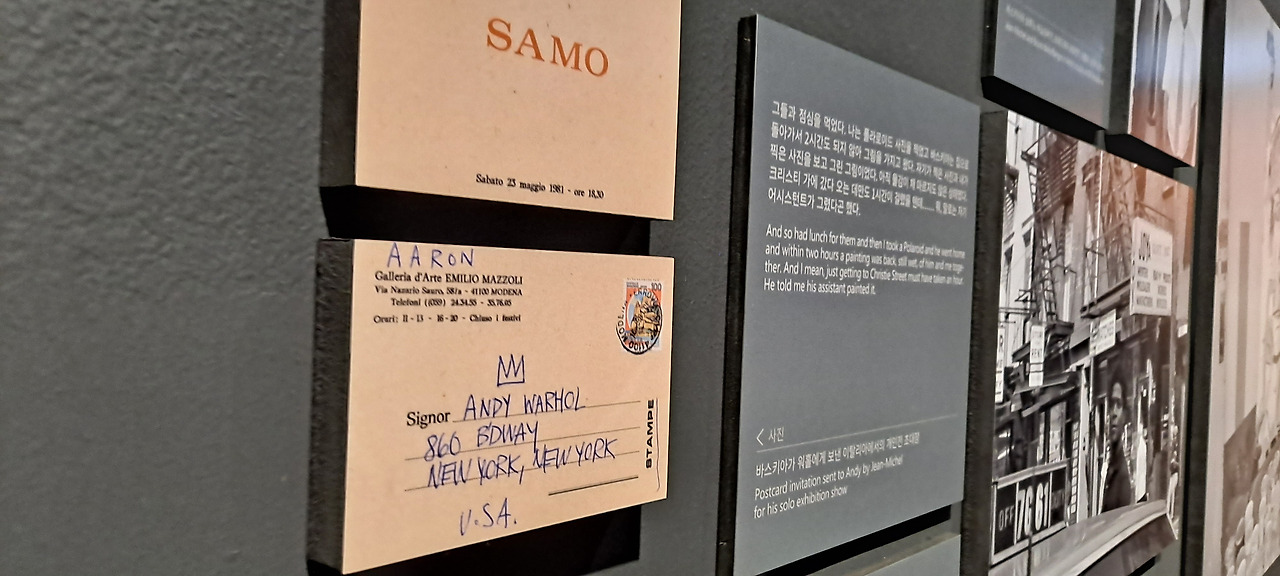 SAMO
Sabato 23 maggio 1981 - ore 18,30
AARON
Galleria d'Arte EMILIO MAZZOLI
Via Nazario Sauro, 58/a - 41100 MODENA
Telefoni (059) 24.34.55 - 35.76.05
Orari: 11 - 13 - 16 - 20 - Chiuso i festivi
100
Signor ANDY WARHOL
860 BDWAY
NEW YORK, NEW YORK
U.S.A.
STAMPE
그들과 점심을 먹었다. 나는 폴라로이드 사진을 찍었고 바스키아는 집으로
돌아가서 2시간도 되지 않아 그림을 가지고 왔다. 자기가 찍은 사진과 내가
찍은 사진을 보고 그린 그림이었다. 아직 물감이 채 마르지도 않은 상태였다.
크리스티 가에 갔다 오는 데만도 1시간이 걸렸을 텐데....... 뭐, 말로는 자기
어시스턴트가 그렸다곤 했다.
And so had lunch for them and then I took a Polaroid and he went home
and within two hours a painting was back, still wet, of him and me toge-
ther. And I mean, just getting to Christie Street must have taken an hour.
He told me his assistant painted it.
< 사진
바스키아가 워홀에게 보낸 이탈리아에서의 개인전 초대장
Postcard invitation sent to Andy by Jean-Michel
for his solo exhibition show
JOY
OFF 7661